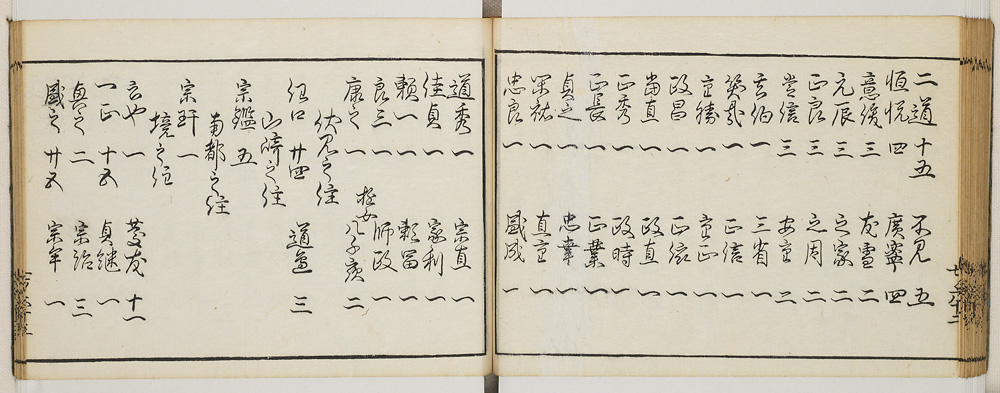 二道 十五 不見 五
恒悦 四 廣寧 四
意後 三 友雪 二
元辰 三 之家 二
正良 三 之周 二
常信 三 安重 二
玄伯 一 三省 一
一 正信 一
重勝 一 重正 一
政昌 一 正依 一
當直 一 政直 一
正秀 一 政時 一
正長 一 正業 一
貞之 一 忠幸 一
深祐 一 直重 一
忠良 一 盛成 一
道秀 一 宗直 一
佳貞 一 家利 一
頼一 一 頼富 一
良三 一 師政 一
康之 一 八子 二
伏見之住
紹口 廿四 道 三
山崎之住
宗鑑 五
南都之住
宗玕 一
境之住
云也 一 慶友 十一
一正 十五 貞継 一
眞之 二 宗治 三
盛之 廿五 宗牟 一